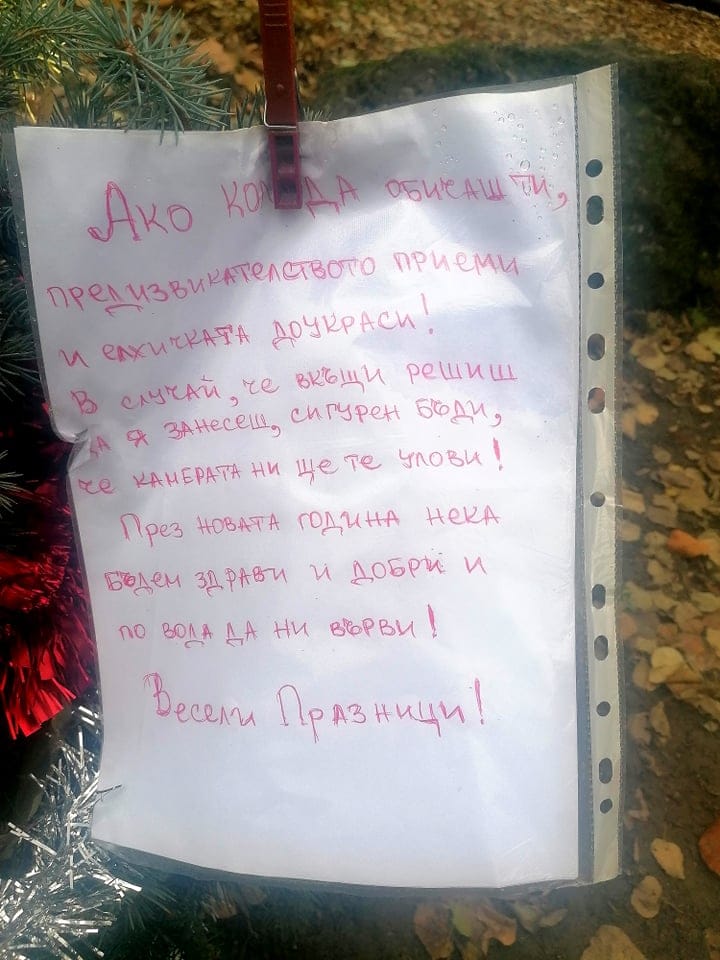 Ако коледа обичаш ти,
предизвикателството приеми
и елхичката доукраси!
В случай, че вкъщи решиш
да я занесеш, сигурен бъди,
че камерата ни ще те улови!
През новата година нека
бъдем здрави и добри и
по вода да ни върви!
Весели Празници!